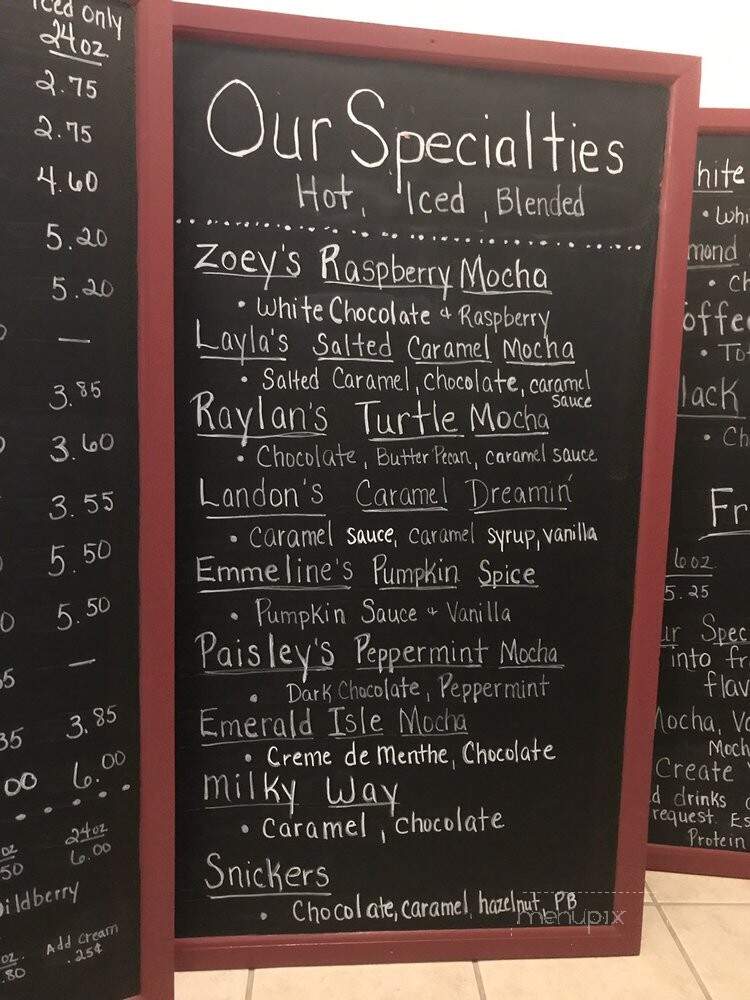 Iced only
24oz
2.75
2.75
4.60
5.20
5.20
—
3.85
3.60
3.55
5.50
5.50
—
3.85
6.00
24oz
6.00
Add Cream
.25¢
Our Specialties
Hot, Iced, Blended
Zoey's Raspberry Mocha
• White Chocolate & Raspberry
Layla's Salted Caramel Mocha
• Salted Caramel, chocolate, caramel
sauce
Raylan's Turtle Mocha
• Chocolate, Butter Pecan, caramel sauce
Landon's Caramel Dreamin'
• Caramel sauce, caramel syrup, vanilla
Emmeline's Pumpkin Spice
• Pumpkin Sauce & Vanilla
Paisley's Peppermint Mocha
• Dark Chocolate, Peppermint
Emerald Isle Mocha
• Creme de Menthe, Chocolate
Milky Way
• Caramel, Chocolate
Snickers
• Chocolate, caramel, hazelnut, PB
menupix
5.25
into
Mocha,
Create
drinks
request.
Protein